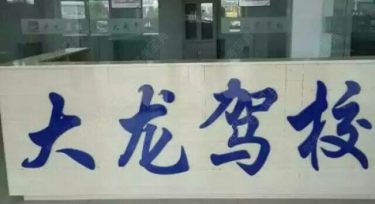 大龙驾校